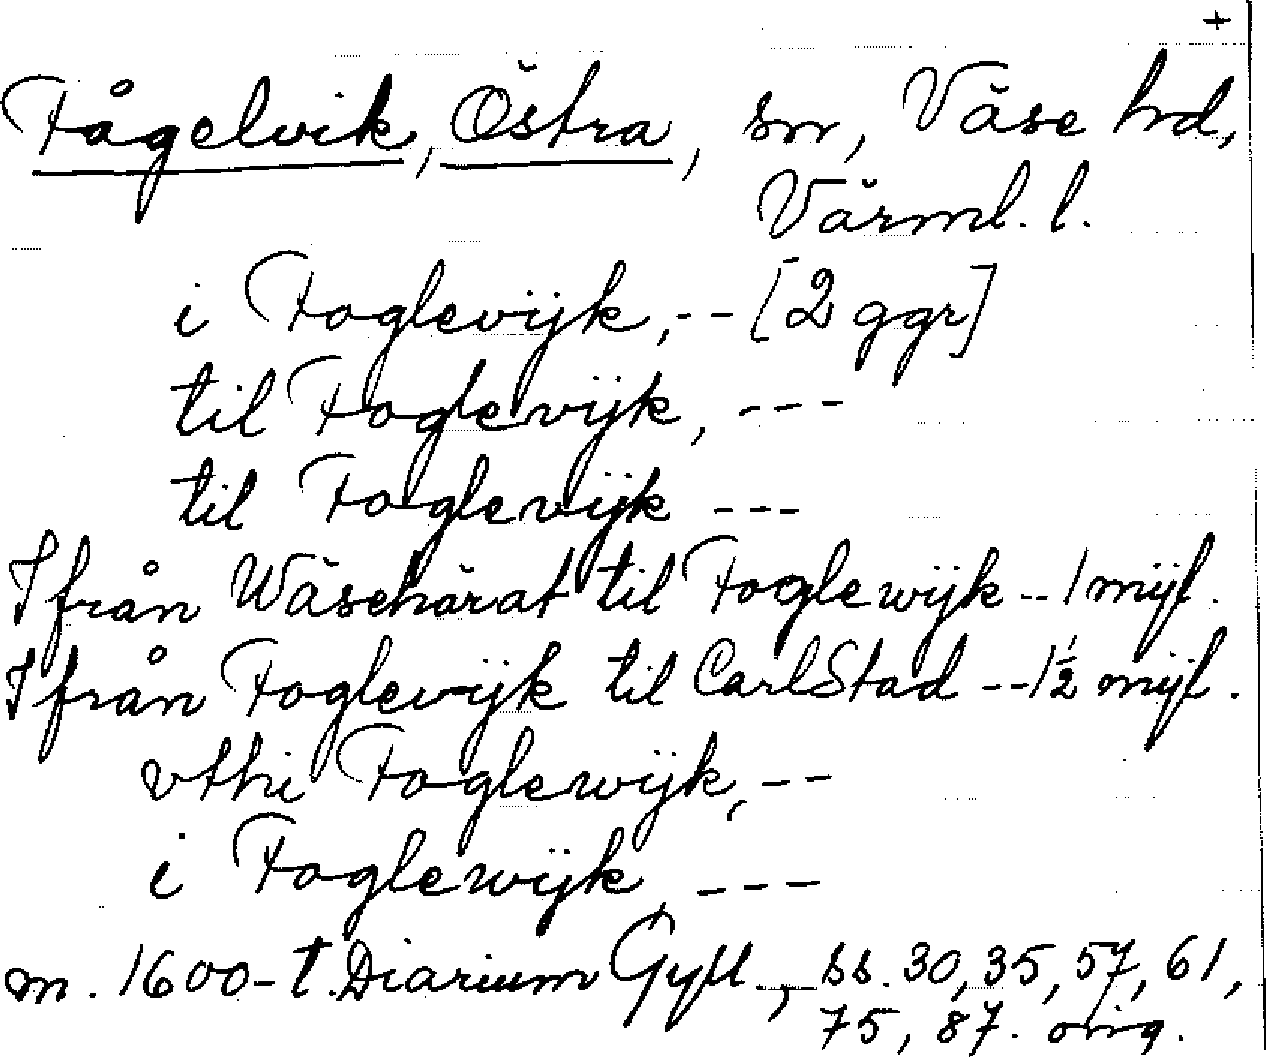 +
Fågelvik, Östra, sn, Väse hd,
Värml. l.
i Foglevijk, -- [2 ggr]
til Foglevijk, ---
til Foglevijk ---
Ifrån Wäsehärat til Foglewijk -- 1 mijl.
Ifrån Foglevijk til CarlStad -- 1½ mijl.
vthi Foglewijk, --
i Foglewijk, ---
m. 1600-t. Diarium Gyll., ss. 30, 35, 57, 61,
75, 87. orig.